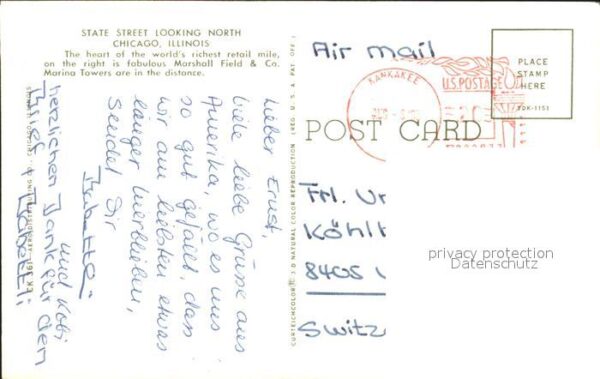 STATE STREET LOOKING NORTH
CHICAGO, ILLINOIS
The heart of the world's richest retail mile,
on the right is fabulous Marshall Field & Co.
Marina Towers are in the distance.
Lieber Ernst,
viele liebe Grüsse aus
Amerika, wo es uns
so gut gefällt, dass
wir am liebsten etwas
länger verblieben,
Sendet Dir
Babette
und Köbi
herzlichen Dank für den
Brief +
CURTEICHCOLOR® 3-D NATURAL COLOR REPRODUCTION (REG. U.S.A. PAT. OFF.)
Air mail
KANKAKEE
U.S. POSTAGE
PLACE
STAMP
HERE
POST CARD
Frl. Ur
Köhl
8405
Switz
privacy protection
Datenschutz